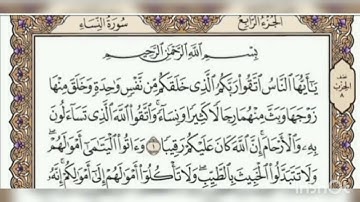 الجزء الرابع
سورة النساء
بِسْمِ اللَّهِ الرَّحْمَٰنِ الرَّحِيمِ
يَا أَيُّهَا النَّاسُ اتَّقُوا رَبَّكُمُ الَّذِي خَلَقَكُم مِّن نَّفْسٍ وَاحِدَةٍ وَخَلَقَ مِنْهَا
زَوْجَهَا وَبَثَّ مِنْهُمَا رِجَالًا كَثِيرًا وَنِسَاءً ۚ وَاتَّقُوا اللَّهَ الَّذِي تَسَاءَلُونَ
بِهِ وَالْأَرْحَامَ ۚ إِنَّ اللَّهَ كَانَ عَلَيْكُمْ رَقِيبًا ١ وَآتُوا الْيَتَامَىٰ أَمْوَالَهُمْ ۖ
وَلَا تَتَبَدَّلُوا الْخَبِيثَ بِالطَّيِّبِ ۖ وَلَا تَأْكُلُوا أَمْوَالَهُمْ إِلَىٰ أَمْوَالِكُمْ ۚ إِنَّهُ